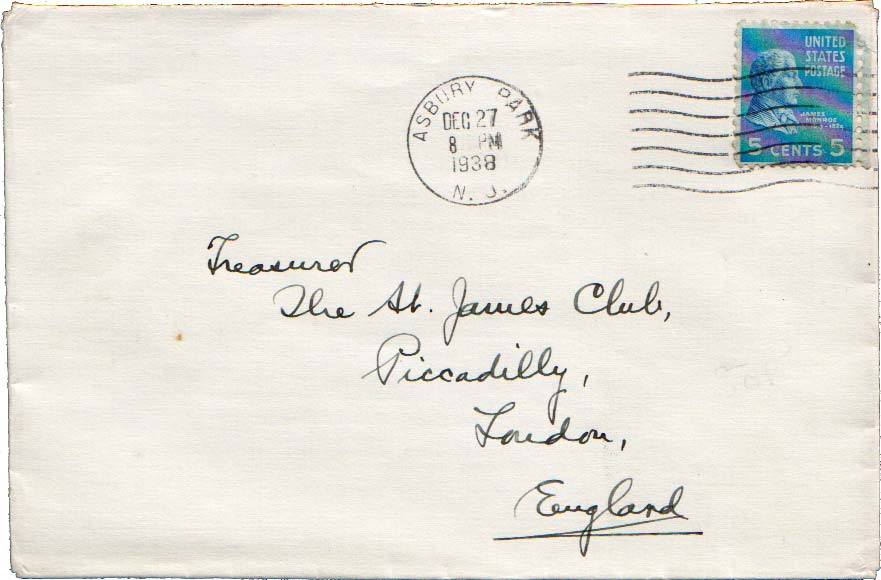 UNITED
STATES
POSTAGE
JAMES
MONROE
5 CENTS 5
ASBURY PARK
DEC 27
8 PM
1938
N. J.
Treasurer
The St. James Club,
Piccadilly,
London,
England